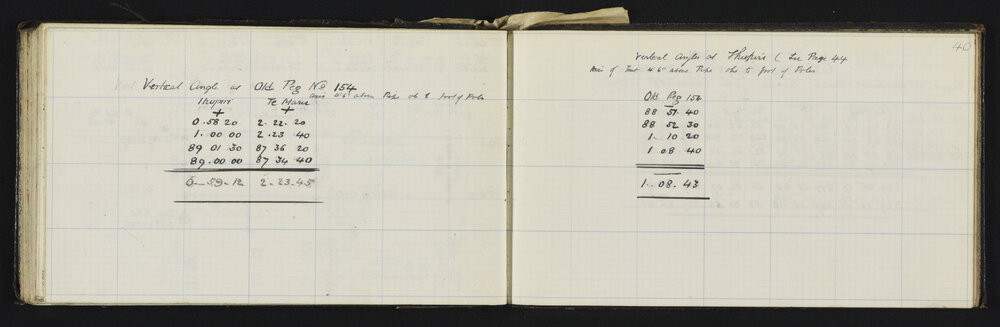 Vertical Angle at Old Peg No 154
axis 4'.6" above Peg ob to foot of Poles
Ihupur Te Mana
+ +
0.58 20 2.22.20
1.00 00 2.23 40
89 01.30 87 36 20
89.00 00 87 34 40
0.59.12 2.23.45
40
Vertical Angles at (See Page 44
Axis of Inst 4'6" above Pegs obs to foot of Poles
Old Peg 154
88 51.40
88 52 30
1.10 20
1 08 40
1.08.43